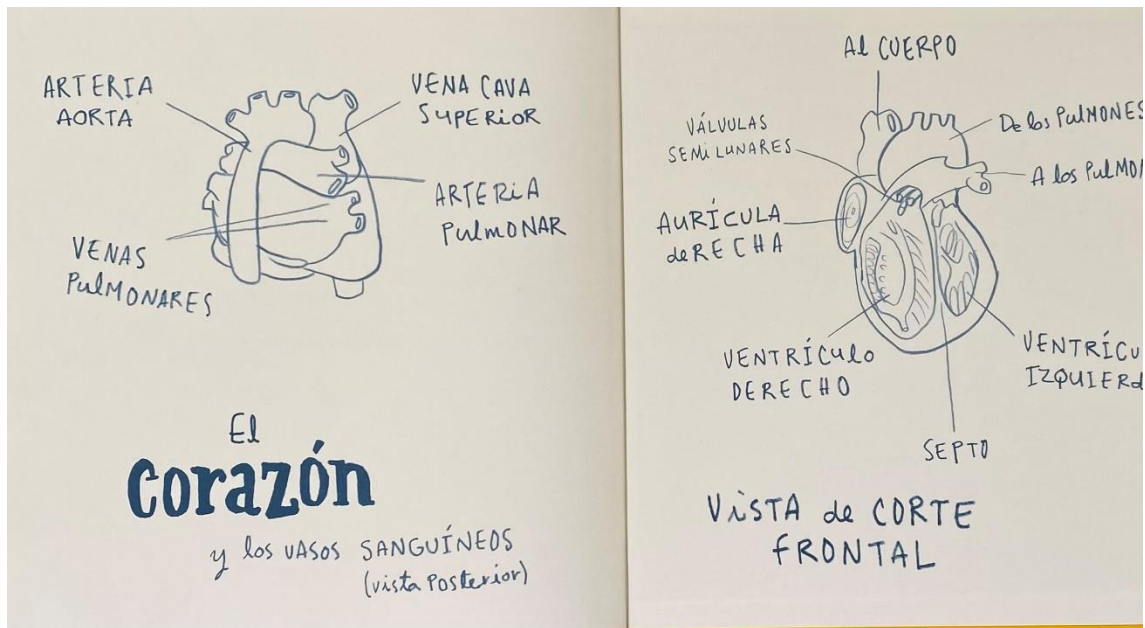 ARTERIA
AORTA
VENA CAVA
SUPERIOR
ARTERIA
PulMONAR
VENAS
PulMONARES
El
corazón
y los VASOS SANGUÍNEOS
(vista Posterior)
Al CUERPO
VÁLVULAS
SEMILUNARES
De los PulMONES
A los PulMON
AURÍCULA
deRECHA
VENTRÍCulo
DERECHO
VENTRÍCU
IZQUIERd
SEPTO
ViSTA de CORTE
FRONTAL